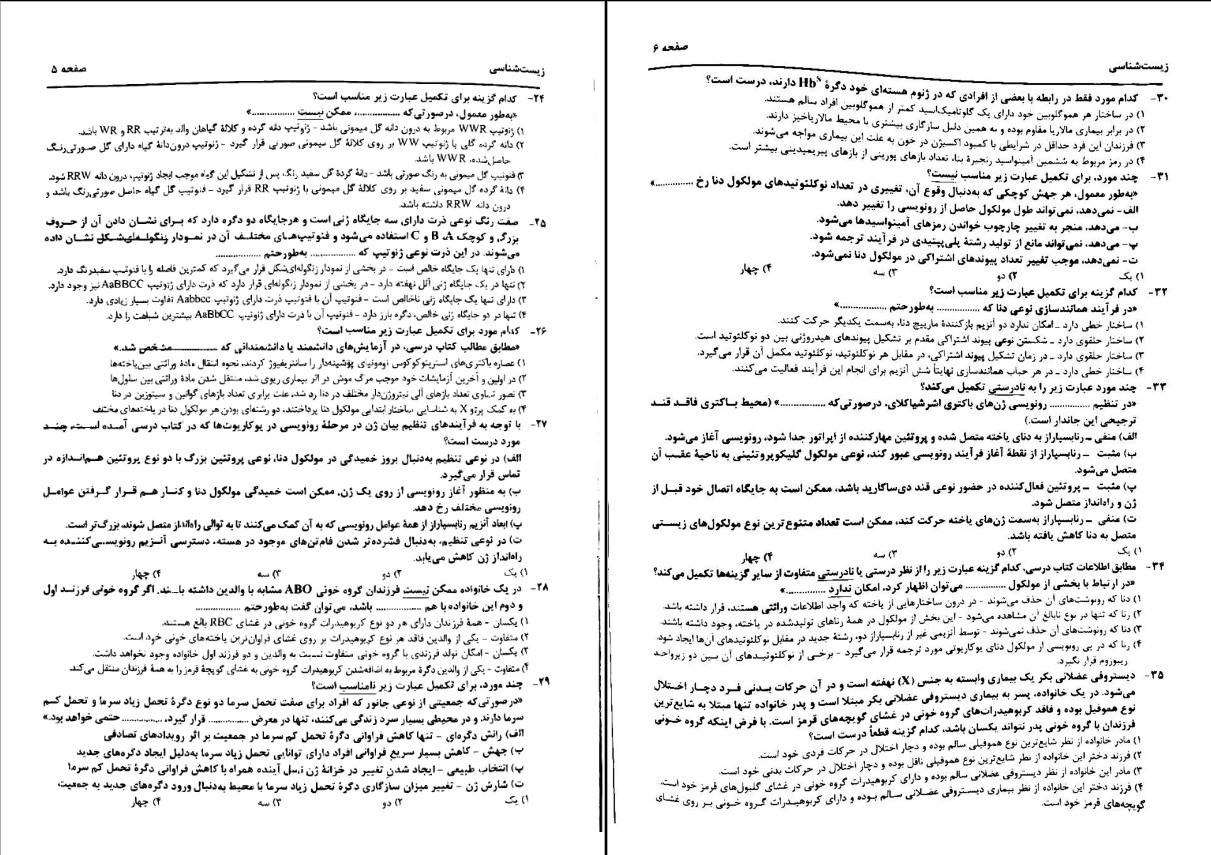 صفحه ۵
زیست‌شناسی
۲۴- کدام گزینه برای تکمیل عبارت زیر مناسب است؟
«به‌طور معمول، درصورتی‌که ................، ممکن نیست ................»
۱) ژنوتیپ WWR مربوط به درون دانه گل میمونی باشد - ژنوتیپ دانه گرده و کلالۀ گیاهان والد به‌ترتیب RR و WR باشد.
۲) دانه گرده گلی با ژنوتیپ WW بر روی کلالۀ گل میمونی صورتی قرار گیرد - ژنوتیپ درون‌دانۀ گیاه دارای گل صورتی‌رنگ
حاصل‌شده، WWR باشد.
۳) فنوتیپ گل میمونی به رنگ صورتی باشد - دانۀ گردۀ گل سفید رنگ، پس از تشکیل این گیاه موجب ایجاد ژنوتیپ، درون دانه RRW شود.
۴) دانۀ گرده گل میمونی سفید بر روی کلالۀ گل میمونی با ژنوتیپ RR قرار گیرد - فنوتیپ گل گیاه حاصل صورتی‌رنگ باشد و
درون دانه RRW داشته باشد.
۲۵- صفت رنگ نوعی ذرت دارای سه جایگاه ژنی است و هرجایگاه دو دگره دارد که برای نشان دادن آن از حروف
بزرگ و کوچک A، B و C استفاده می‌شود و فنوتیپ‌های مختلف آن در نمودار زنگوله‌ای‌شکل نشان داده
می‌شوند. در این ذرت نوعی ژنوتیپ که ................ به‌طورحتم ................
۱) دارای تنها یک جایگاه خالص است - در بخشی از نمودار زنگوله‌ای‌شکل قرار می‌گیرد که کمترین فاصله را با فنوتیپ سفیدرنگ دارد.
۲) تنها در یک جایگاه ژنی آلل نهفته دارد - در بخشی از نمودار زنگوله‌ای قرار دارد که ذرت دارای ژنوتیپ AaBBCC نیز وجود دارد.
۳) دارای تنها یک جایگاه ژنی ناخالص است - فنوتیپ آن با فنوتیپ ذرت دارای ژنوتیپ Aabbcc تفاوت بسیار زیادی دارد.
۴) تنها در دو جایگاه ژنی خالص، دگره بارز دارد - فنوتیپ آن با ذرت دارای ژنوتیپ AaBbCC بیشترین شباهت را دارد.
۲۶- کدام مورد برای تکمیل عبارت زیر مناسب است؟
«مطابق مطالب کتاب درسی، در آزمایش‌های دانشمند یا دانشمندانی که ................ مشخص شد.»
۱) عصاره باکتری‌های استرپتوکوکوس نومونیای پوشینه‌دار را سانتریفیوژ کردند، نحوه انتقال مادۀ وراثتی بین‌یاخته‌ها
۲) در اولین و آخرین آزمایشات خود موجب مرگ موش در اثر بیماری ریوی شد، منتقل شدن مادۀ وراثتی بین سلول‌ها
۳) تصور تساوی تعداد بازهای آلی نیتروژن‌دار مختلف در دنا رد شد، علت برابری تعداد بازهای گوانین و سیتوزین در دنا
۴) به کمک پرتو X به شناسایی ساختار ابتدایی مولکول دنا پرداختند، دو رشته‌ای بودن هر مولکول دنا در یاخته‌های مختلف
۲۷- با توجه به فرآیندهای تنظیم بیان ژن در مرحلۀ رونویسی در یوکاریوت‌ها که در کتاب درسی آمده است، چند
مورد درست است؟
الف) در نوعی تنظیم به‌دنبال بروز خمیدگی در مولکول دنا، نوعی پروتئین بزرگ با دو نوع پروتئین هم‌اندازه در
تماس قرار می‌گیرد.
ب) به منظور آغاز رونویسی از روی یک ژن، ممکن است خمیدگی مولکول دنا و کنار هم قرار گرفتن عوامل
رونویسی مختلف رخ دهد.
پ) ابعاد آنزیم رنابسپاراز از همۀ عوامل رونویسی که به آن کمک می‌کنند تا به توالی راه‌انداز متصل شوند، بزرگ‌تر است.
ت) در نوعی تنظیم، به‌دنبال فشرده‌تر شدن فام‌تن‌های موجود در هسته، دسترسی آنزیم رونویسی‌کننده به
راه‌انداز ژن کاهش می‌یابد.
۱) یک ۲) دو ۳) سه ۴) چهار
۲۸- در یک خانواده ممکن نیست فرزندان گروه خونی ABO مشابه با والدین داشته باشند. اگر گروه خونی فرزند اول
و دوم این خانواده با هم ................ باشد، می‌توان گفت به‌طورحتم ................
۱) یکسان - همۀ فرزندان دارای هر دو نوع کربوهیدرات گروه خونی در غشای RBC بالغ هستند.
۲) متفاوت - یکی از والدین فاقد هر نوع کربوهیدرات بر روی غشای فراوان‌ترین یاخته‌های خونی خود است.
۳) یکسان - امکان تولد فرزندی با گروه خونی متفاوت نسبت به والدین و دو فرزند اول خانواده وجود نخواهد داشت.
۴) متفاوت - یکی از والدین دگرۀ مربوط به اضافه‌شدن کربوهیدرات گروه خونی به غشای گویچۀ قرمز را به همۀ فرزندان منتقل می‌کند.
۲۹- چند مورد، برای تکمیل عبارت زیر نامناسب است؟
«درصورتی‌که جمعیتی از نوعی جانور که افراد برای صفت تحمل سرما دو نوع دگرۀ تحمل زیاد سرما و تحمل کم
سرما دارند و در محیطی بسیار سرد زندگی می‌کنند، تنها در معرض ................ قرار گیرد، ................ حتمی خواهد بود.»
الف) رانش دگره‌ای - تنها کاهش فراوانی دگرۀ تحمل کم سرما در جمعیت بر اثر رویدادهای تصادفی
ب) جهش - کاهش بسیار سریع فراوانی افراد دارای توانایی تحمل زیاد سرما به‌دلیل ایجاد دگره‌های جدید
پ) انتخاب طبیعی - ایجاد شدن تغییر در خزانۀ ژن نسل آینده همراه با کاهش فراوانی دگرۀ تحمل کم سرما
ت) شارش ژن - تغییر میزان سازگاری دگرۀ تحمل زیاد سرما با محیط به‌دنبال ورود دگره‌های جدید به جمعیت
۱) یک ۲) دو ۳) سه ۴) چهار
صفحه ۶
زیست‌شناسی
۳۰- کدام مورد فقط در رابطه با بعضی از افرادی که در ژنوم هسته‌ای خود دگرۀ Hbˢ دارند، درست است؟
۱) در ساختار هر هموگلوبین خود دارای یک گلوتامیک‌اسید کمتر از هموگلوبین افراد سالم هستند.
۲) در برابر بیماری مالاریا مقاوم بوده و به همین دلیل سازگاری بیشتری با محیط مالاریاخیز دارند.
۳) فرزندان این فرد حداقل در شرایطی با کمبود اکسیژن در خون به علت این بیماری مواجه می‌شوند.
۴) در رمز مربوط به ششمین آمینواسید زنجیرۀ بتا، تعداد بازهای پورینی از بازهای پیریمیدینی بیشتر است.
۳۱- چند مورد، برای تکمیل عبارت زیر مناسب نیست؟
«به‌طور معمول، هر جهش کوچکی که به‌دنبال وقوع آن، تغییری در تعداد نوکلئوتیدهای مولکول دنا رخ ................»
الف - نمی‌دهد، نمی‌تواند طول مولکول حاصل از رونویسی را تغییر دهد.
ب- می‌دهد، منجر به تغییر چارچوب خواندن رمزهای آمینواسیدها می‌شود.
پ- می‌دهد، نمی‌تواند مانع از تولید رشتۀ پلی‌پپتیدی در فرآیند ترجمه شود.
ت- نمی‌دهد، موجب تغییر تعداد پیوندهای اشتراکی در مولکول دنا نمی‌شود.
۱) یک ۲) دو ۳) سه ۴) چهار
۳۲- کدام گزینه برای تکمیل عبارت زیر مناسب است؟
«در فرآیند همانندسازی نوعی دنا که ................ به‌طورحتم ................»
۱) ساختار خطی دارد - امکان ندارد دو آنزیم بازکنندۀ مارپیچ دنا، به‌سمت یکدیگر حرکت کنند.
۲) ساختار حلقوی دارد - شکستن نوعی پیوند اشتراکی مقدم بر تشکیل پیوندهای هیدروژنی بین دو نوکلئوتید است.
۳) ساختار حلقوی دارد - در زمان تشکیل پیوند اشتراکی، در مقابل هر نوکلئوتید، نوکلئوتید مکمل آن قرار می‌گیرد.
۴) ساختار خطی دارد - در هر حباب همانندسازی نهایتاً شش آنزیم برای انجام این فرآیند فعالیت می‌کنند.
۳۳- چند مورد عبارت زیر را به نادرستی تکمیل می‌کند؟
«در تنظیم ................ رونویسی ژن‌های باکتری اشرشیاکلای، درصورتی‌که ................» (محیط باکتری فاقد قند
ترجیحی این جاندار است.)
الف) منفی - رنابسپاراز به دنای یاخته متصل شده و پروتئین مهارکننده از اپراتور جدا شود، رونویسی آغاز می‌شود.
ب) مثبت - رنابسپاراز از نقطۀ آغاز فرآیند رونویسی عبور کند، نوعی مولکول گلیکوپروتئینی به ناحیۀ عقب آن
متصل می‌شود.
پ) مثبت - پروتئین فعال‌کننده در حضور نوعی قند دی‌ساکارید باشد، ممکن است به جایگاه اتصال خود قبل از
ژن و راه‌انداز متصل شود.
ت) منفی - رنابسپاراز به‌سمت ژن‌های یاخته حرکت کند، ممکن است تعداد متنوع‌ترین نوع مولکول‌های زیستی
متصل به دنا کاهش یافته باشد.
۱) یک ۲) دو ۳) سه ۴) چهار
۳۴- مطابق اطلاعات کتاب درسی، کدام گزینه عبارت زیر را از نظر درستی یا نادرستی متفاوت از سایر گزینه‌ها تکمیل می‌کند؟
«در ارتباط با بخشی از مولکول ................ می‌توان اظهار کرد، امکان ندارد ................»
۱) دنا که رونوشت‌های آن حذف می‌شوند - در درون ساختارهایی از یاخته که واجد اطلاعات وراثتی هستند، قرار داشته باشد.
۲) رنا که تنها در نوع نابالغ آن مشاهده می‌شود - این بخش از مولکول در همۀ رناهای تولیدشده در یاخته، وجود داشته باشند.
۳) دنا که رونوشت‌های آن حذف نمی‌شوند - توسط آنزیمی غیر از رنابسپاراز دو، رشتۀ جدید در مقابل نوکلئوتیدهای آن‌ها ایجاد شود.
۴) رنا که در پی رونویسی از مولکول دنای یوکاریوتی مورد ترجمه قرار می‌گیرد - برخی از نوکلئوتیدهای آن سین دو زیرواحد
ریبوزوم قرار نگیرد.
۳۵- دیستروفی عضلانی بکر یک بیماری وابسته به جنس (X) نهفته است و در آن حرکات بدنی فرد دچار اختلال
می‌شود. در یک خانواده، پسر به بیماری دیستروفی عضلانی بکر مبتلا است و پدر خانواده تنها مبتلا به شایع‌ترین
نوع هموفیلی بوده و فاقد کربوهیدرات‌های گروه خونی در غشای گویچه‌های قرمز است. با فرض اینکه گروه خونی
فرزندان با گروه خونی پدر نتواند یکسان باشد، کدام گزینه قطعاً درست است؟
۱) مادر خانواده از نظر شایع‌ترین نوع هموفیلی سالم بوده و دچار اختلال در حرکات فردی خود است.
۲) فرزند دختر این خانواده از نظر شایع‌ترین نوع هموفیلی ناقل بوده و دچار اختلال در حرکات بدنی خود است.
۳) مادر این خانواده از نظر دیستروفی عضلانی سالم بوده و دارای کربوهیدرات گروه خونی در غشای گلبول‌های قرمز خود است.
۴) فرزند دختر این خانواده از نظر بیماری دیستروفی عضلانی سالم بوده و دارای کربوهیدرات گروه خونی بر روی غشای
گویچه‌های قرمز خود است.